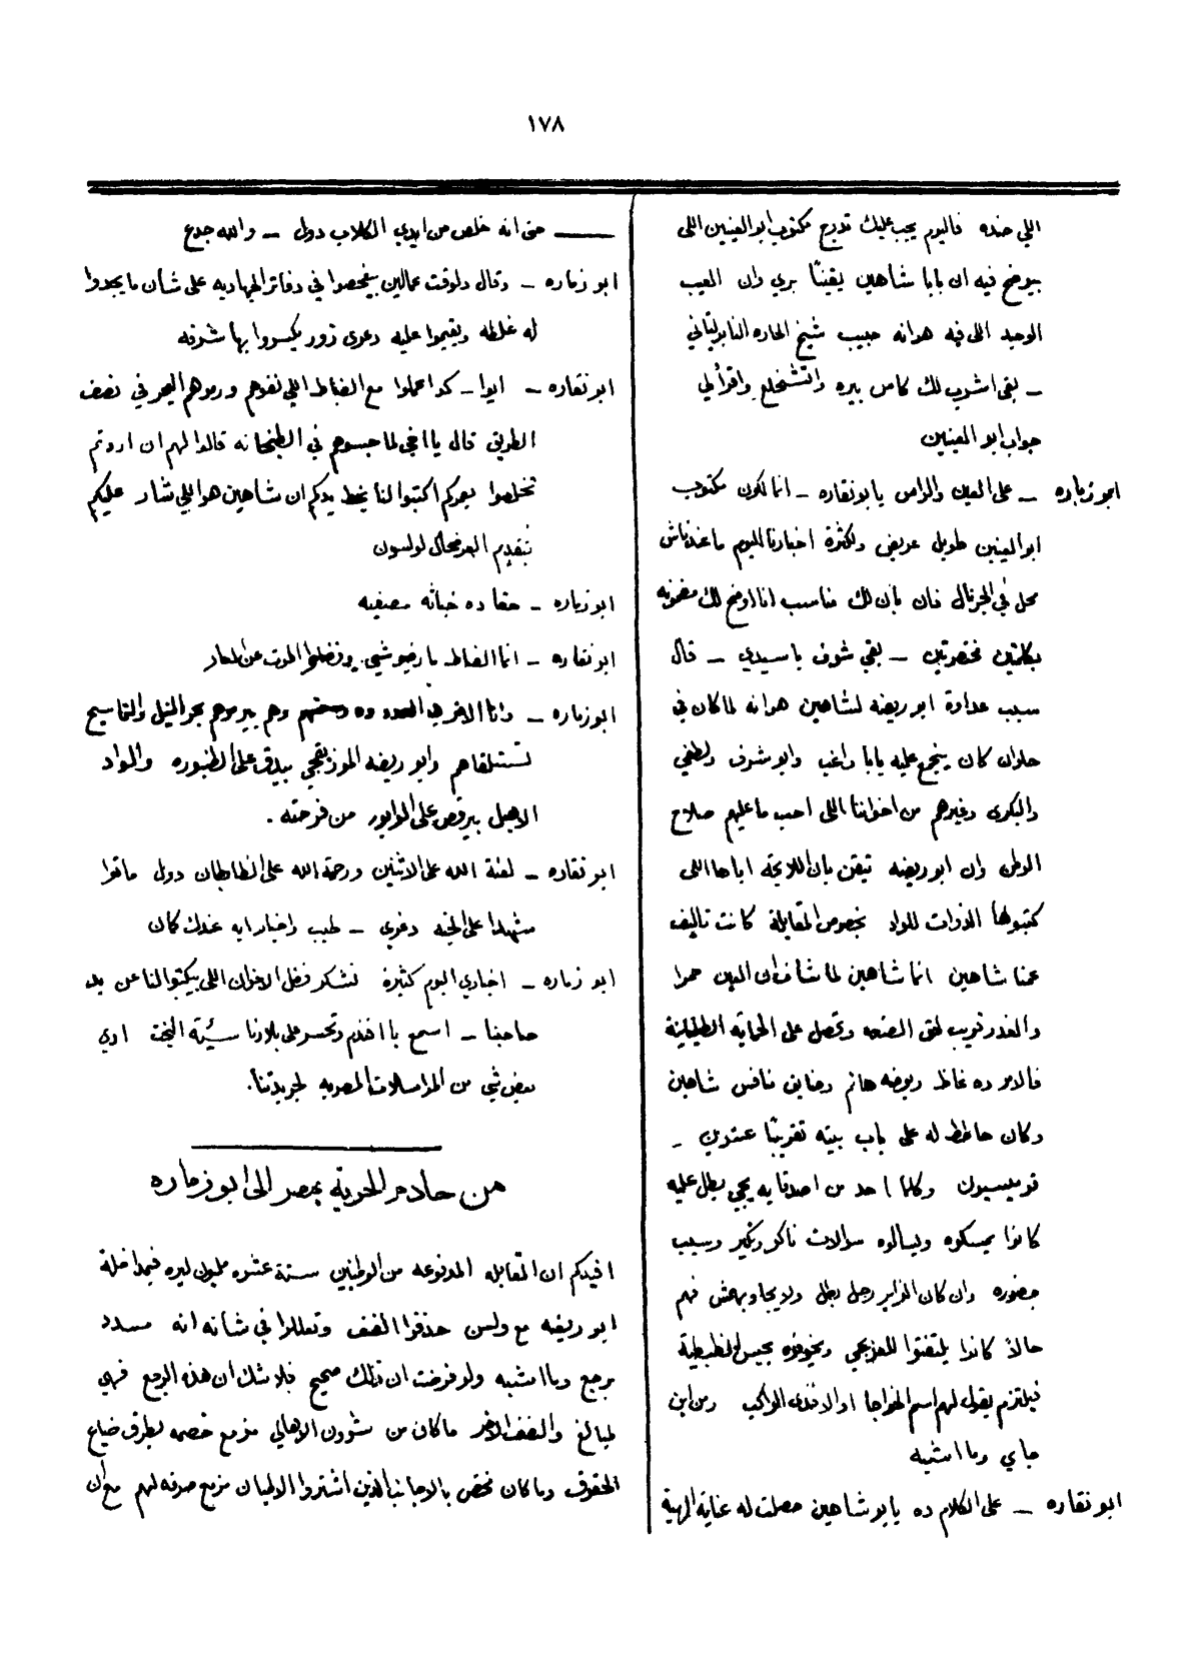 ١٧٨
اللي ضده فاليوم يجب عليك تدرج مكتوب ابو العينين اللى
بيوضح فيه ان بابا شاهين يقينًا بري وان العيب
الوحيد اللى فيه هو انه حبيب شيخ الحاره النابوليتاني
ـ بقى اشرب لك كاس بيره واتشخلع واقرأ لي
جواب ابو العينين
ابو زماره ـ على العين والراس يا بو نقاره ـ انما لكون مكتوب
ابو العينين طويل عريض ولكثرة اخبارنا اليوم ما عندناش
محل في الجرنال فان بان لك مناسب انا اوضح لك مضمونه
بكلمتين مختصرتين ـ بقى شوف يا سيدي ـ قال
سبب عداوة ابو ريضه لشاهين هو انه لما كان في
حلوان كان يتجمع عليه بابا راغب وابو شرف ولطفي
والبكرى وغيرهم من اخواننا اللى احب ما عليهم صلاح
الوطن وان ابو ريضه تيقن بان اللايحة اياها اللى
كتبوها الذوات للواد بخصوص المقابلة كانت تاليف
عمنا شاهين انما شاهين لما شاف ان العين حمرا
والغدر قريب لحق الصنعه وتحصل على الحمايه الطليانية
فالامر ده غاظ ريضه هانم وخاين نافس شاهين
وكان حاطط له على باب بيته تقريبًا عشرين ـ
قوميسيون وكلما احد من اصدقايه يجي يطل عليه
كانوا يمسكوه ويسالوه سوالات ناكر ونكير وسبب
حضوره وان كان الزاير رجل بطل ولا يجاوبهمش فهم
حالاً كانوا يلتفتوا للعربجي ويخوفوه بحبس الظبطية
فيلتزم يقول لهم اسم الخواجا او الافندى الراكب ومن اين
جاي وما اشبه
ابو نقاره ـ على الكلام ده يا بو شاهين حصلت له عناية الهية
ـــــ حتى انه خلص من ايدي الكلاب دول ـ والله جدع
ابو زماره ـ وقال دلوقت عمالين بيفحصوا في دفاتر الجهاديه على شان ما يجدوا
له غلطه ويقيموا عليه دعوى زور يكسروا بها شرفه
ابو نقاره ـ ايوا ـ كدا عملوا مع الضباط اللي نفوهم ورموهم البحر في نصف
الطريق قال يا اخي لما حبسوهم في الطبخانه قالوا لهم ان اردتم
تخلصوا بعمركم اكتبوا لنا بخط يدكم ان شاهين هو اللي شار عليكم
بتقديم العرضحال لولسون
ابو زماره ـ حقا ده خباثه مصفيه
ابو نقاره ـ انما الضباط ما رضيوشي وفضلوا الموت عن العار
ابو زماره ـ وانا الاخر في وهم بيرموهم بحر النيل والتماسيح
تستلقاهم وابو ريضه المزيقجي بيدق على الطنبوره والواد
الاهبل بيرقص على الوابور من فرحته .
ابو نقاره ـ لعنة الله على الاثنين ورحمة الله على الظابطان دول ماتوا
شهدا على الحق دغري ـ طيب واخبار ايه عندك كان
ابو زماره ـ اخباري اليوم كثيرة نشكر فضل الاخوان اللى بيكتبوا لنا عن يد
صاحبنا ـ اسمع يا افندم وتحسر على بلادنا سيئة البخت ادي
بعض شي من المراسلات المصريه لجريدتنا.
من خادم الحرية بمصر الى ابو زماره
افيدكم ان المقابله المدفوعه من الوطنيين ستة عشره مليون ليره فبمداخلة
ابو ريضه مع ولسن حذفوا النصف وتعللوا في شأنه انه مسدد
برجع وما اشبه ولو فرضت ان ذلك صحيح فلا شك ان هذه الرجع فهي
لمبالغ والنصف الاخر ما كان من شؤون الاهالي مزمع خصمه بطرق ضياع
الحقوق وما كان مختص بالاجانب الذين اشتروا الاطيان مزمع صرفه لهم مع ان